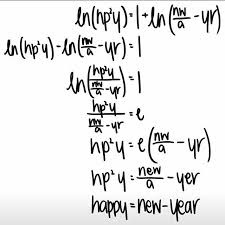 ln(hp²y)=1+ln(nw/a-yr)
ln(hp²y)-ln(nw/a-yr)=1
ln(hp²y/(nw/a-yr))=1
hp²y/(nw/a-yr)=e
hp²y=e(nw/a-yr)
hp²y=new/a-yer
happy=new-year